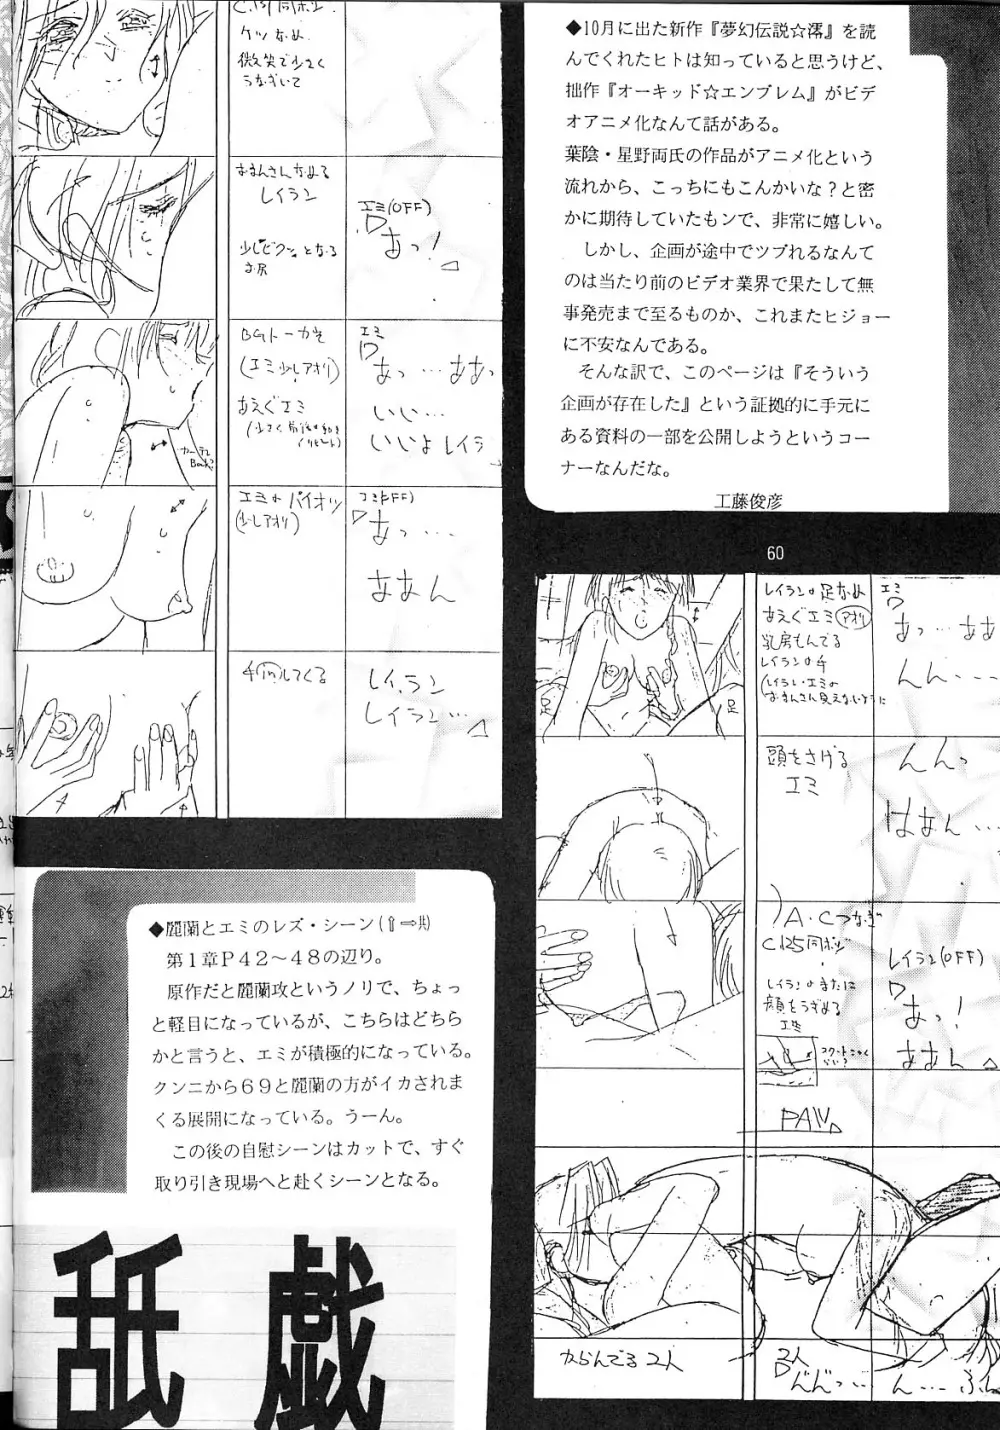 ◆10月に出た新作『夢幻伝説☆澪』を読
んでくれたヒトは知っていると思うけど、
拙作『オーキッド☆エンブレム』がビデ
オアニメ化なんて話がある。
葉陰・星野両氏の作品がアニメ化という
流れから、こっちにもこんかいな？と密
かに期待していたもンで、非常に嬉しい。
しかし、企画が途中でツブれるなんて
のは当たり前のビデオ業界で果たして無
事発売まで至るものか、これまたヒジョー
に不安なんである。
そんな訳で、このページは『そういう
企画が存在した』という証拠的に手元に
ある資料の一部を公開しようというコー
ナーなんだな。
工藤俊彦
60
微笑で少さく
うなずいて
レイラン
少しビクッとなる
お尻
エミ(OFF)
あっ！
(エミ少しアオリ)
あえぐエミ
エミ
あっ…ああっ
いい…
いいよレイラン
エミのパイオツ
(少しアオリ)
エミ(OFF)
あっ…
ああん
手inしてくる
レイラン
レイラン…
レイランの足なめ
あえぐエミ(アオリ)
乳房もんでる
レイランの手
足
足
エミ
あっ…ああ
んん…
頭をさげる
エミ
んんっ
はああん…
A・Cつなぎ
C125同ポジ
レイランのまたに
顔をうずめる
エミ
レイラン(OFF)
あっ！
ああん
PAN
からんでる2人
2人
ん…
◆麗蘭とエミのレズ・シーン(⇧⇨共)
第１章Ｐ４２～４８の辺り。
原作だと麗蘭攻というノリで、ちょっ
と軽目になっているが、こちらはどちら
かと言うと、エミが積極的になっている。
クンニから６９と麗蘭の方がイカされま
くる展開になっている。うーん。
この後の自慰シーンはカットで、すぐ
取り引き現場へと赴くシーンとなる。
舐戯